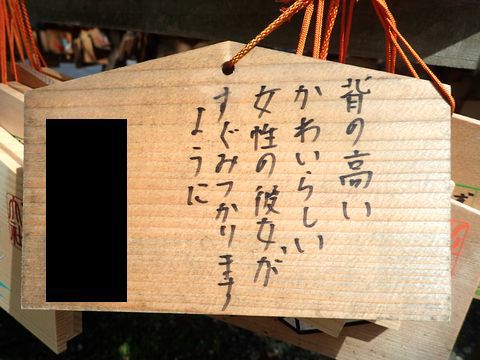 背の高い
かわいらしい
女性の彼女が
すぐみつかります
ように